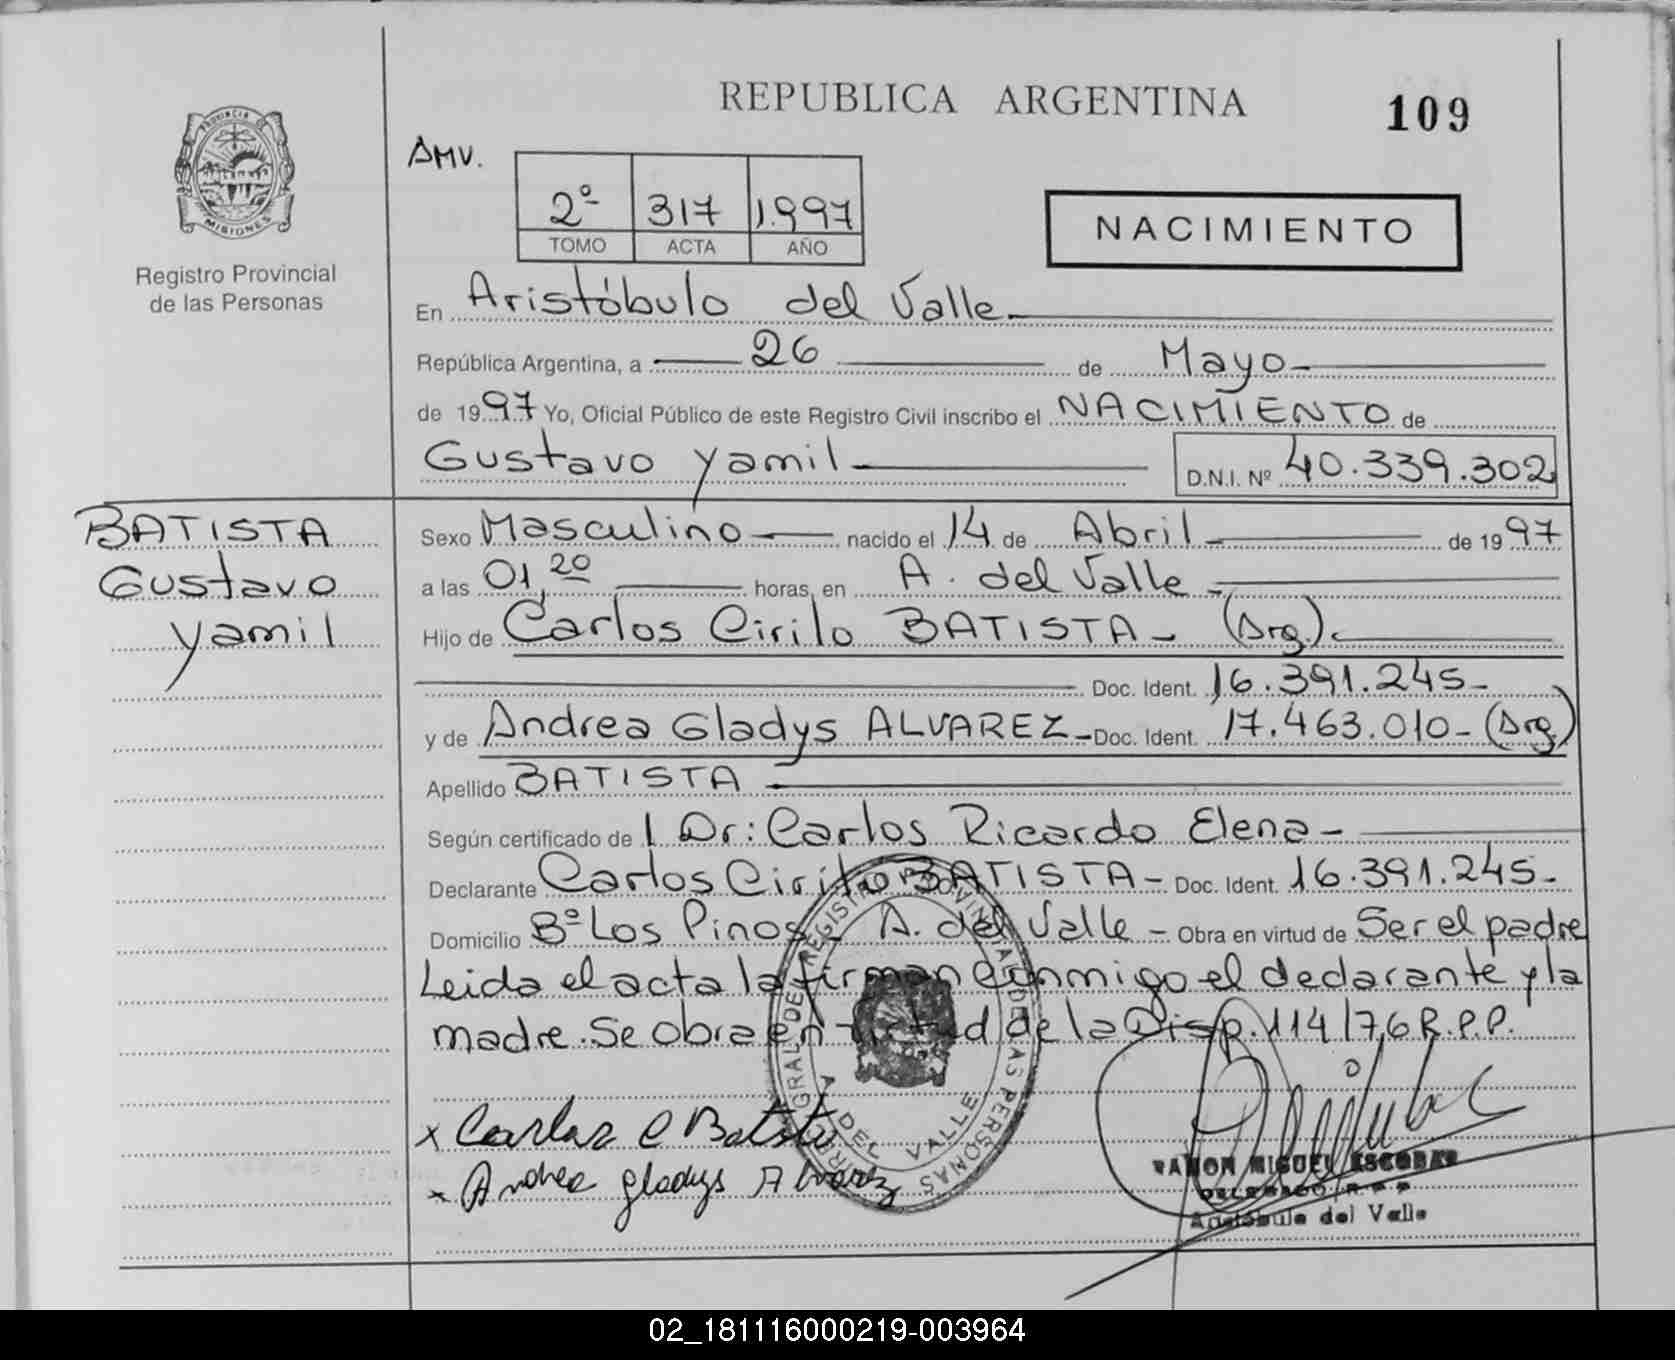 REPUBLICA ARGENTINA
109
PROVINCIA DE
MISIONES
Registro Provincial
de las Personas
AMV.
2º 317 1.997
TOMO ACTA AÑO
NACIMIENTO
En Aristóbulo del Valle
República Argentina, a 26 de Mayo
de 1997 Yo, Oficial Público de este Registro Civil inscribo el NACIMIENTO de
Gustavo Yamil D.N.I. Nº 40.339.302
BATISTA
Gustavo
Yamil
Sexo Masculino nacido el 14 de Abril de 1997
a las 01,20 horas, en A. del Valle
Hijo de Carlos Cirilo BATISTA - (Arg).
Doc. Ident. 16.391.245-
y de Andrea Gladys ALVAREZ - Doc. Ident. 17.463.010- (Arg)
Apellido BATISTA
Según certificado de l Dr: Carlos Ricardo Elena -
Declarante Carlos Cirilo BATISTA - Doc. Ident. 16.391.245-
Domicilio Bº Los Pinos - A. del Valle - Obra en virtud de Ser el padre
Leida el acta la firman conmigo el declarante y la
madre. Se obra en virtud de la Disp. 114/76 R.P.P.
x Carlos C Batista
x Andrea gladys Alvarez
REGISTRO PROVINCIAL DE LAS PERSONAS
A DEL VALLE
RAMON MIGUEL ESCOBAR
DELEGADO R.P.P
Aristóbulo del Valle
02_181116000219-003964